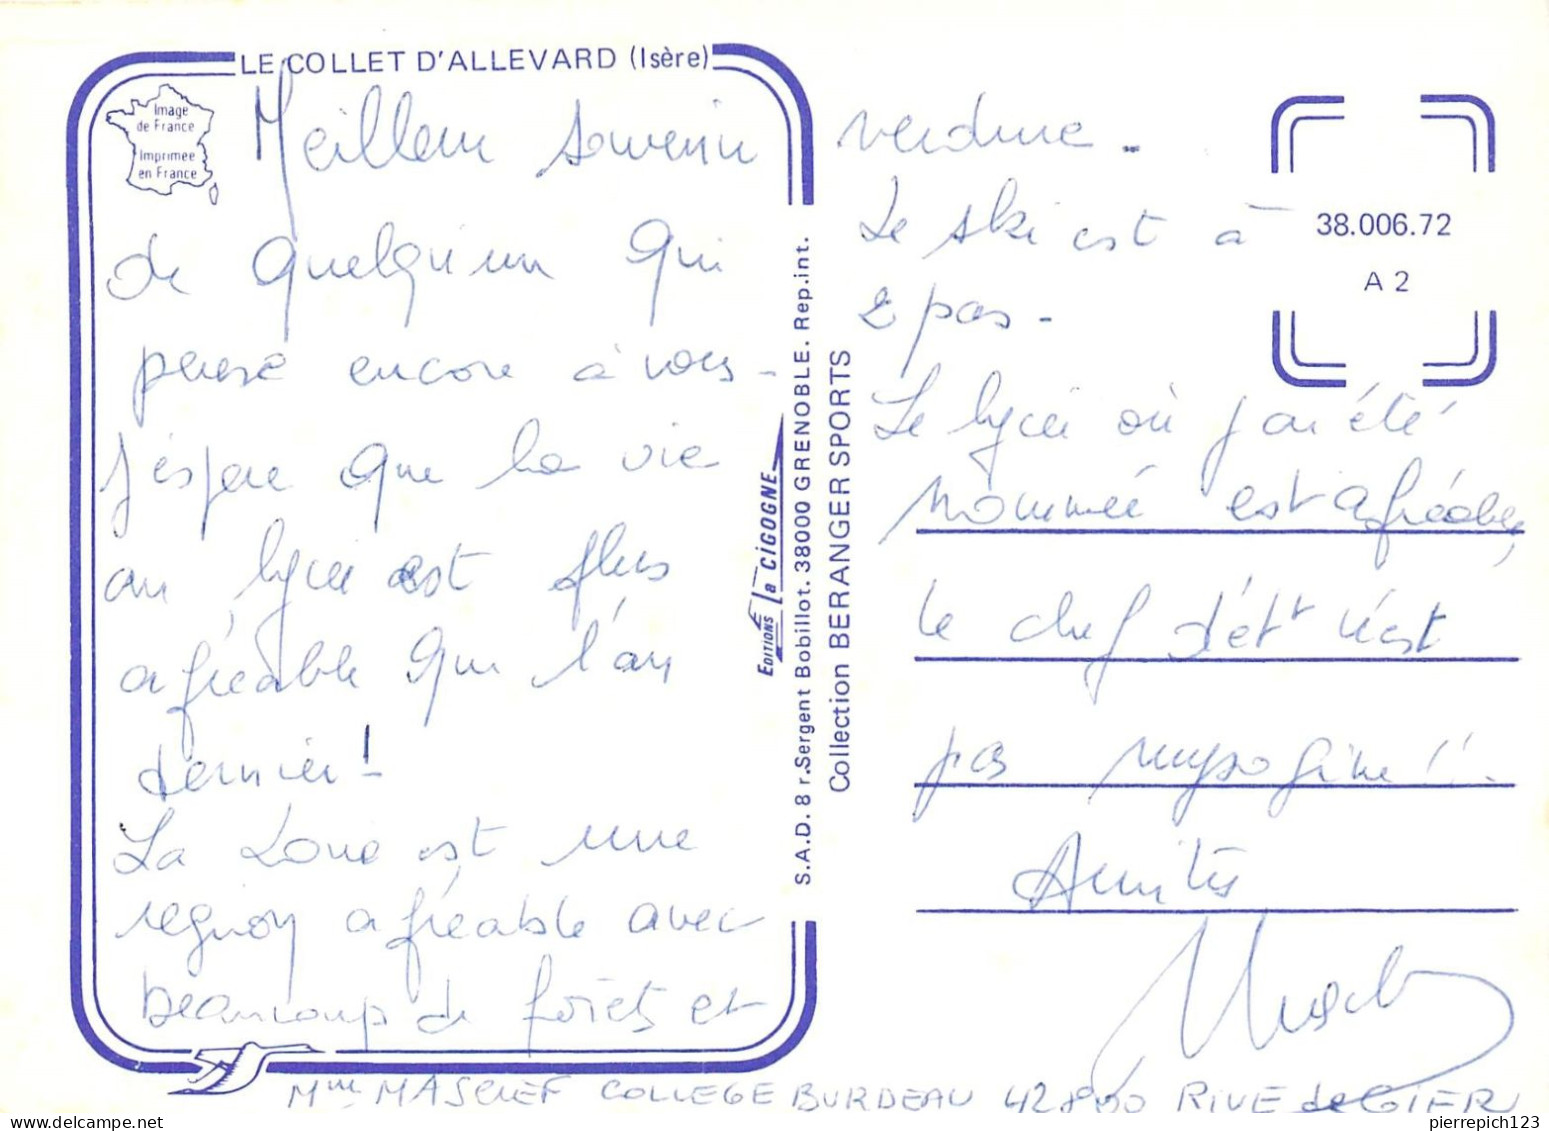 LE COLLET D'ALLEVARD (Isère)
Image
de France
Imprimée
en France
Meilleur souvenir
de quelqu'un qui
pense encore à vous -
J'espère que la vie
au lycée est plus
agréable que l'an
dernier !
La Loire est une
region agréable avec
beaucoup de forêts et
EDITIONS La CIGOGNE
S.A.D. 8 r.Sergent Bobillot. 38000 GRENOBLE. Rep.int.
Collection BERANGER SPORTS
verdure -
Le ski est à
2 pas -
Le lycée où j'ai été
nommée est agréable,
le chef d'étt n'est
pas mysogine !!
Amitiés
38.006.72
A 2
Mme MASCLEF COLLEGE BURDEAU 42800 RIVE de GIER
www.delcampe.net
pierrepich123